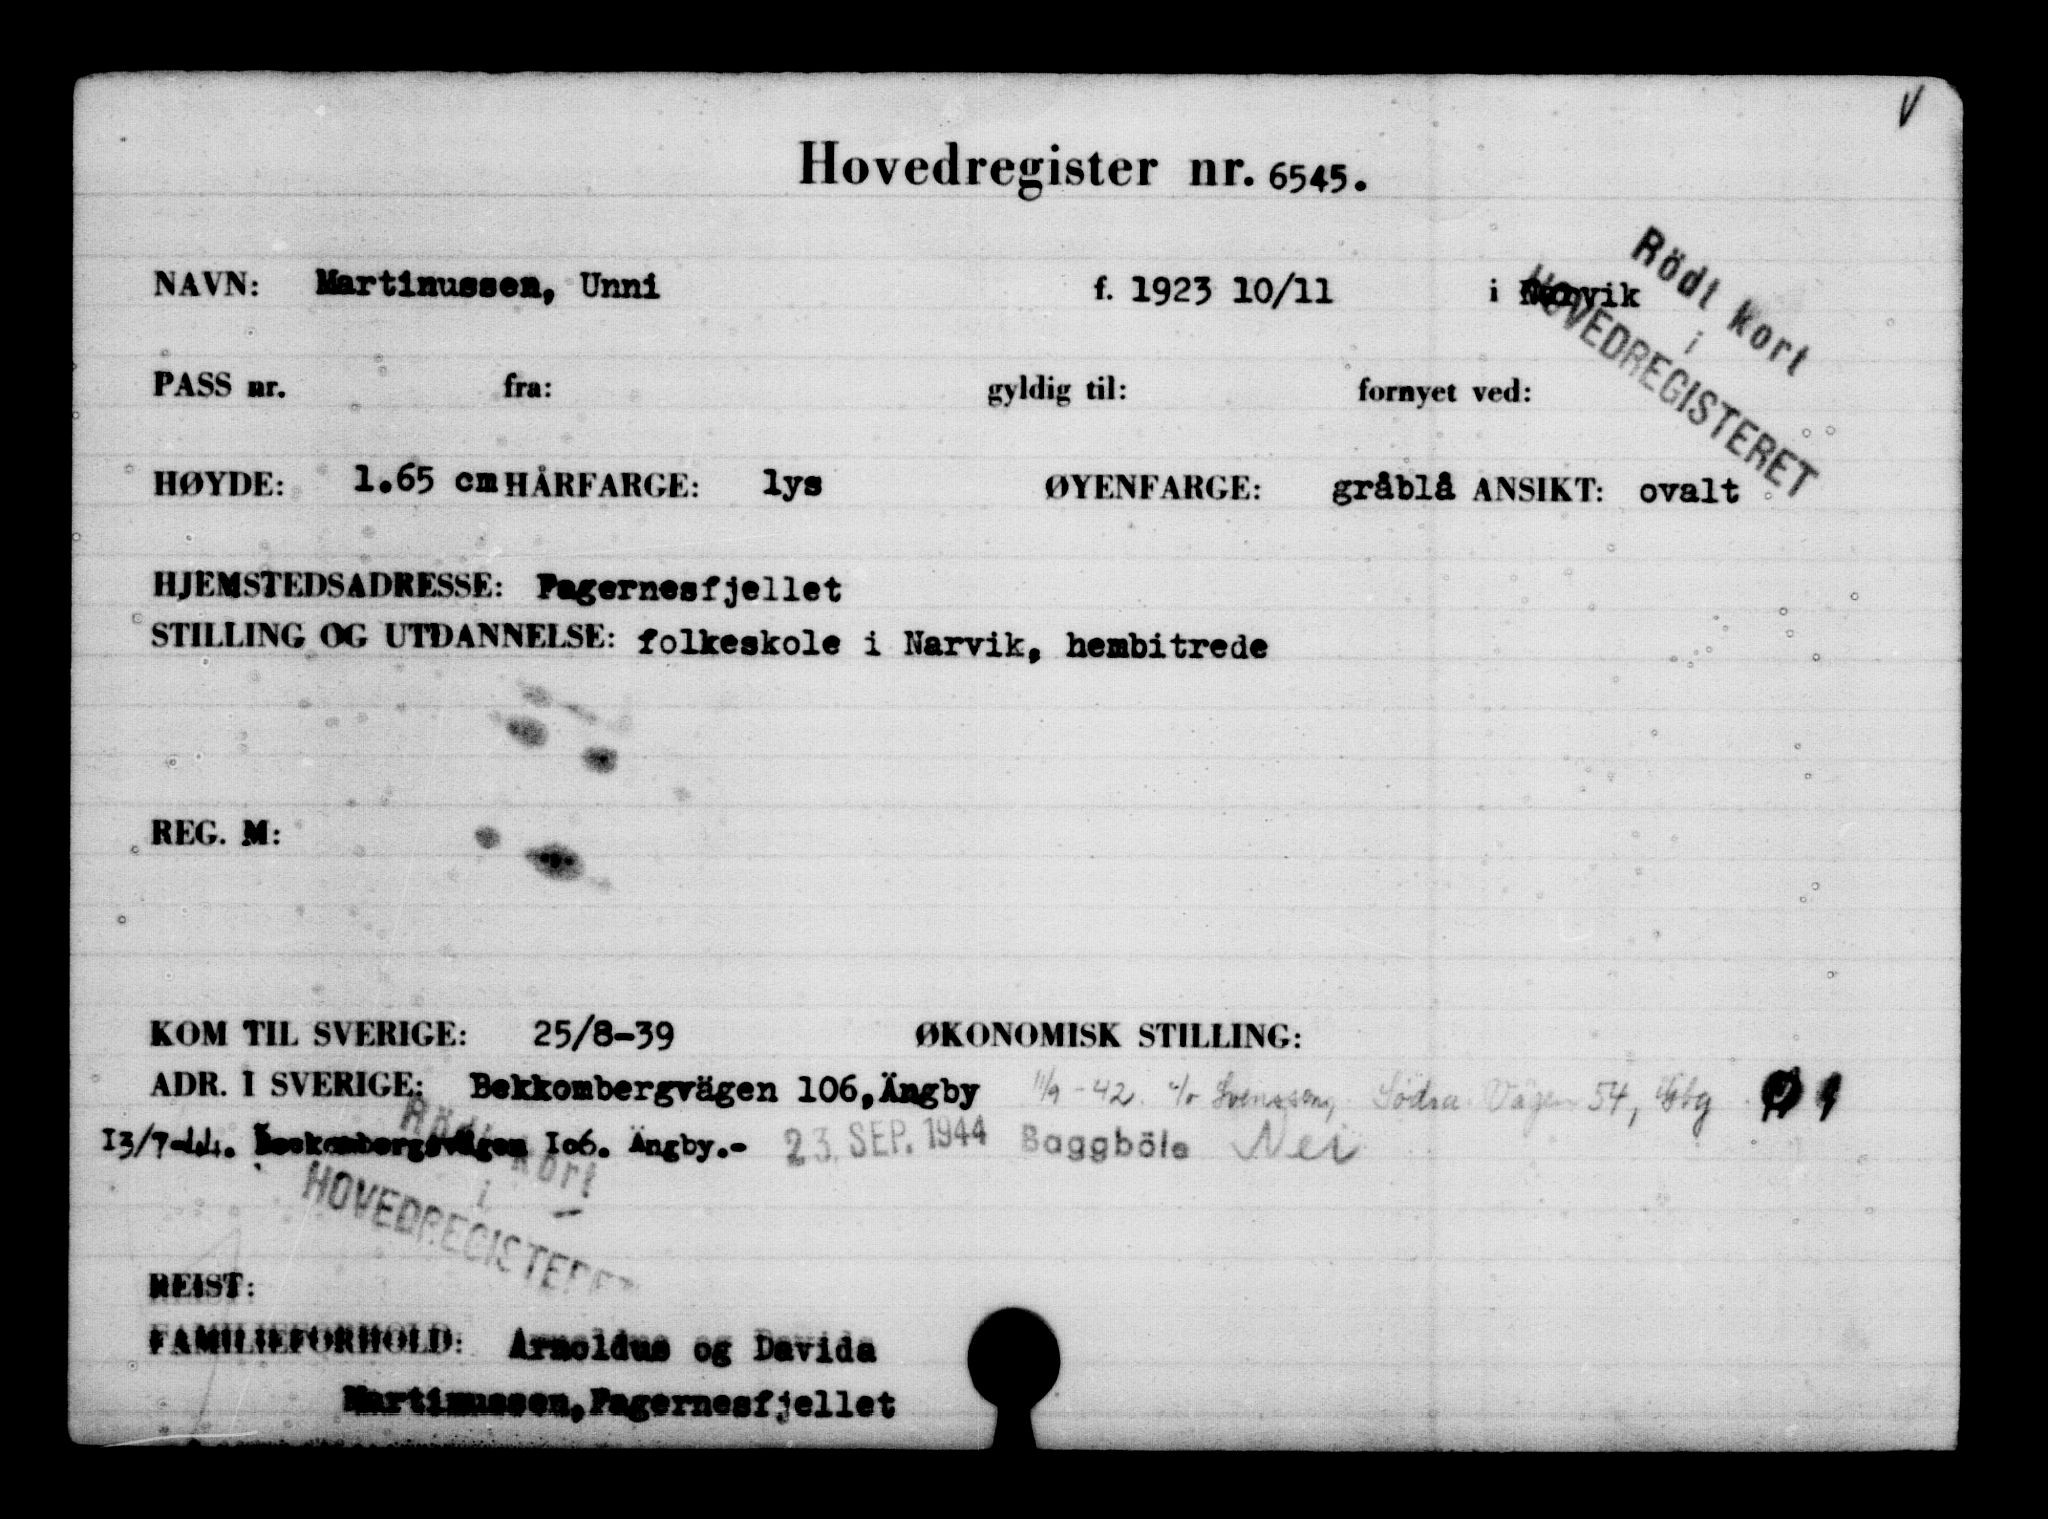 V
Hovedregister nr. 6545.
Rödt kort
i
HOVEDREGISTERET
NAVN: Martinussen, Unni f. 1923 10/11 i Narvik
PASS nr. fra: gyldig til: fornyet ved:
HØYDE: 1.65 cm HÅRFARGE: lys ØYENFARGE: gråblå ANSIKT: ovalt
HJEMSTEDSADRESSE: Fagernesfjellet
STILLING OG UTDANNELSE: folkeskole i Narvik, hembitrede
REG. M:
KOM TIL SVERIGE: 25/8-39 ØKONOMISK STILLING:
ADR. I SVERIGE: Bekkombergvägen 106, Ängby 11/9 -42. c/o Svensson, Södra Vägen 54, Gbg Ø
13/7-44. Beckombergsvägen 106. Ängby.- 23. SEP. 1944 Baggböle Nei
Rödt kort
i
HOVEDREGISTERET
REIST:
FAMILIEFORHOLD: Arnoldus og Davida
Martinussen, Fagernesfjellet